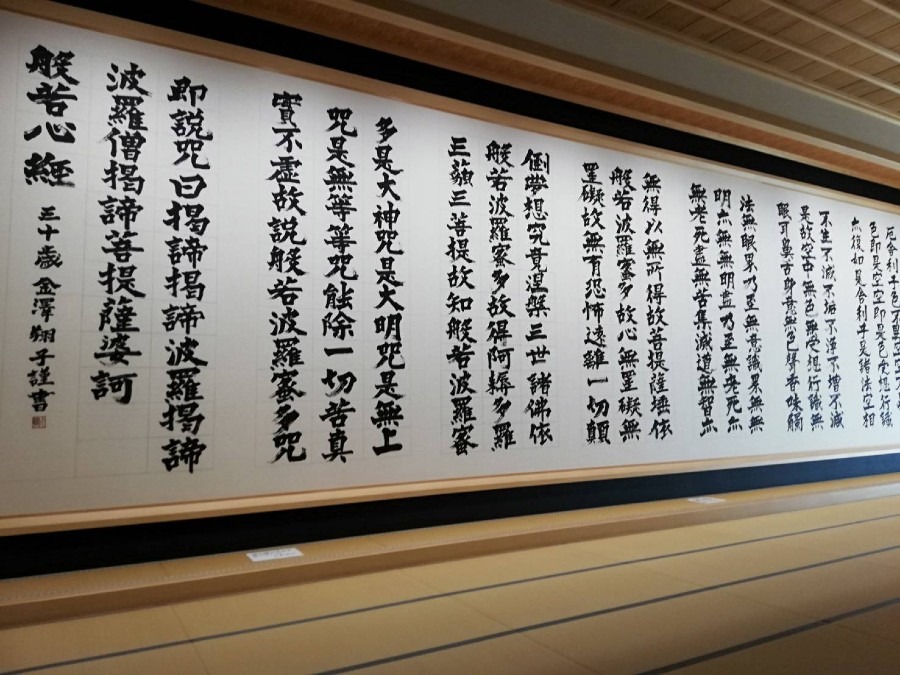 厄舍利子色不異空空不異
色即是空空即是色受想行識
亦復如是舍利子是諸法空相
不生不滅不垢不淨不增不減
是故空中無色無受想行識無
眼耳鼻舌身意無色聲香味觸
法無眼界乃至無意識界無無
明亦無無明盡乃至無老死亦
無老死盡無苦集滅道無智亦
無得以無所得故菩提薩埵依
般若波羅蜜多故心無罣礙無
罣礙故無有恐怖遠離一切顛
倒夢想究竟涅槃三世諸佛依
般若波羅蜜多故得阿耨多羅
三藐三菩提故知般若波羅蜜
多是大神咒是大明咒是無上
咒是無等等咒能除一切苦真
實不虛故說般若波羅蜜多咒
即說咒曰揭諦揭諦波羅揭諦
波羅僧揭諦菩提薩婆訶
般若心經
三十歳 金澤翔子謹書